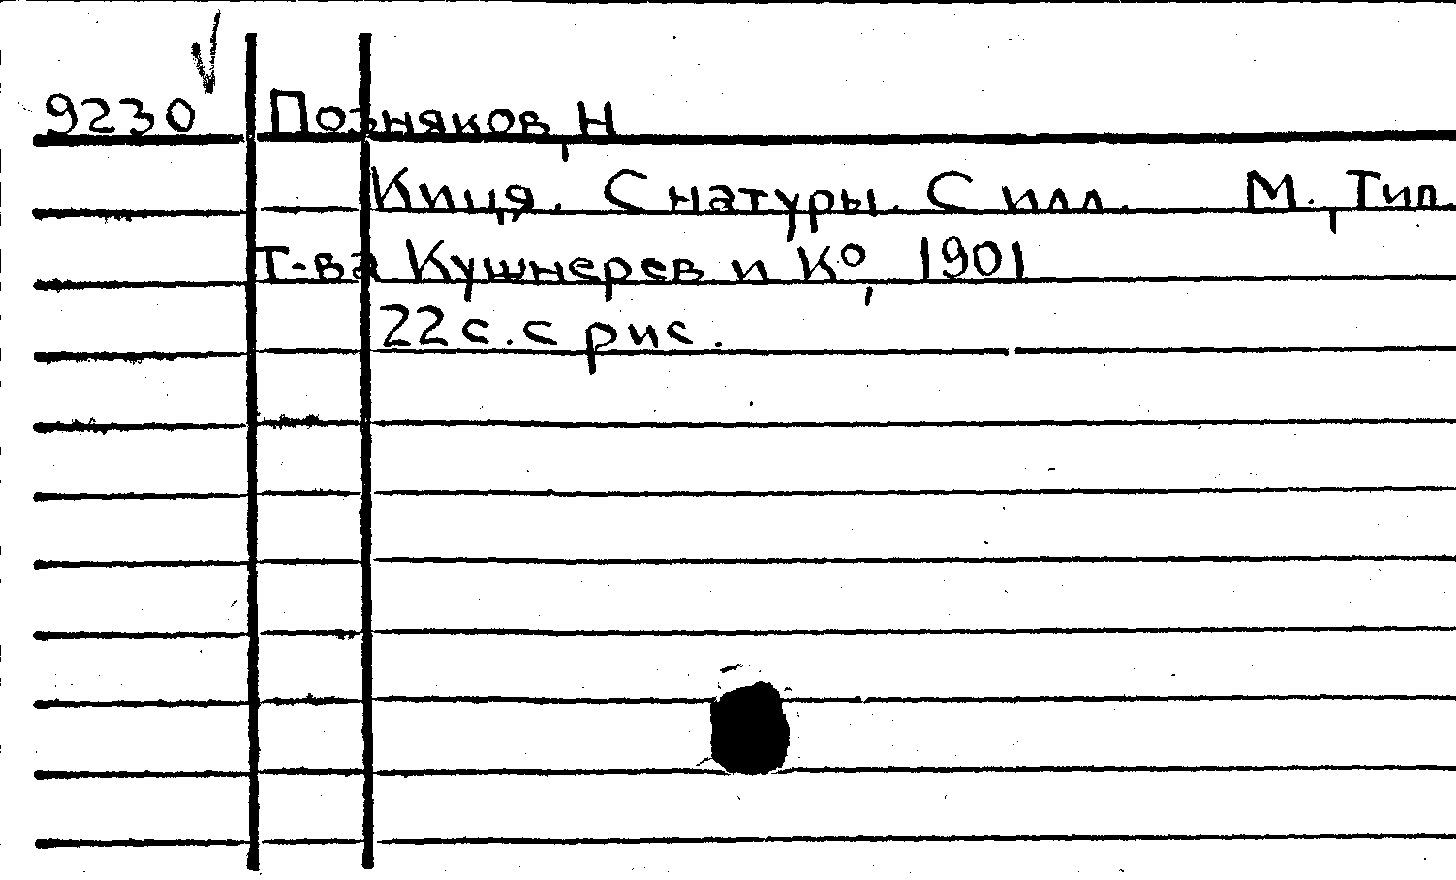 9230 Позняков, Н
Киця. С натуры. С илл. М., Тип.
Т-ва Кушнерев и К°, 1901
22 с. с рис.